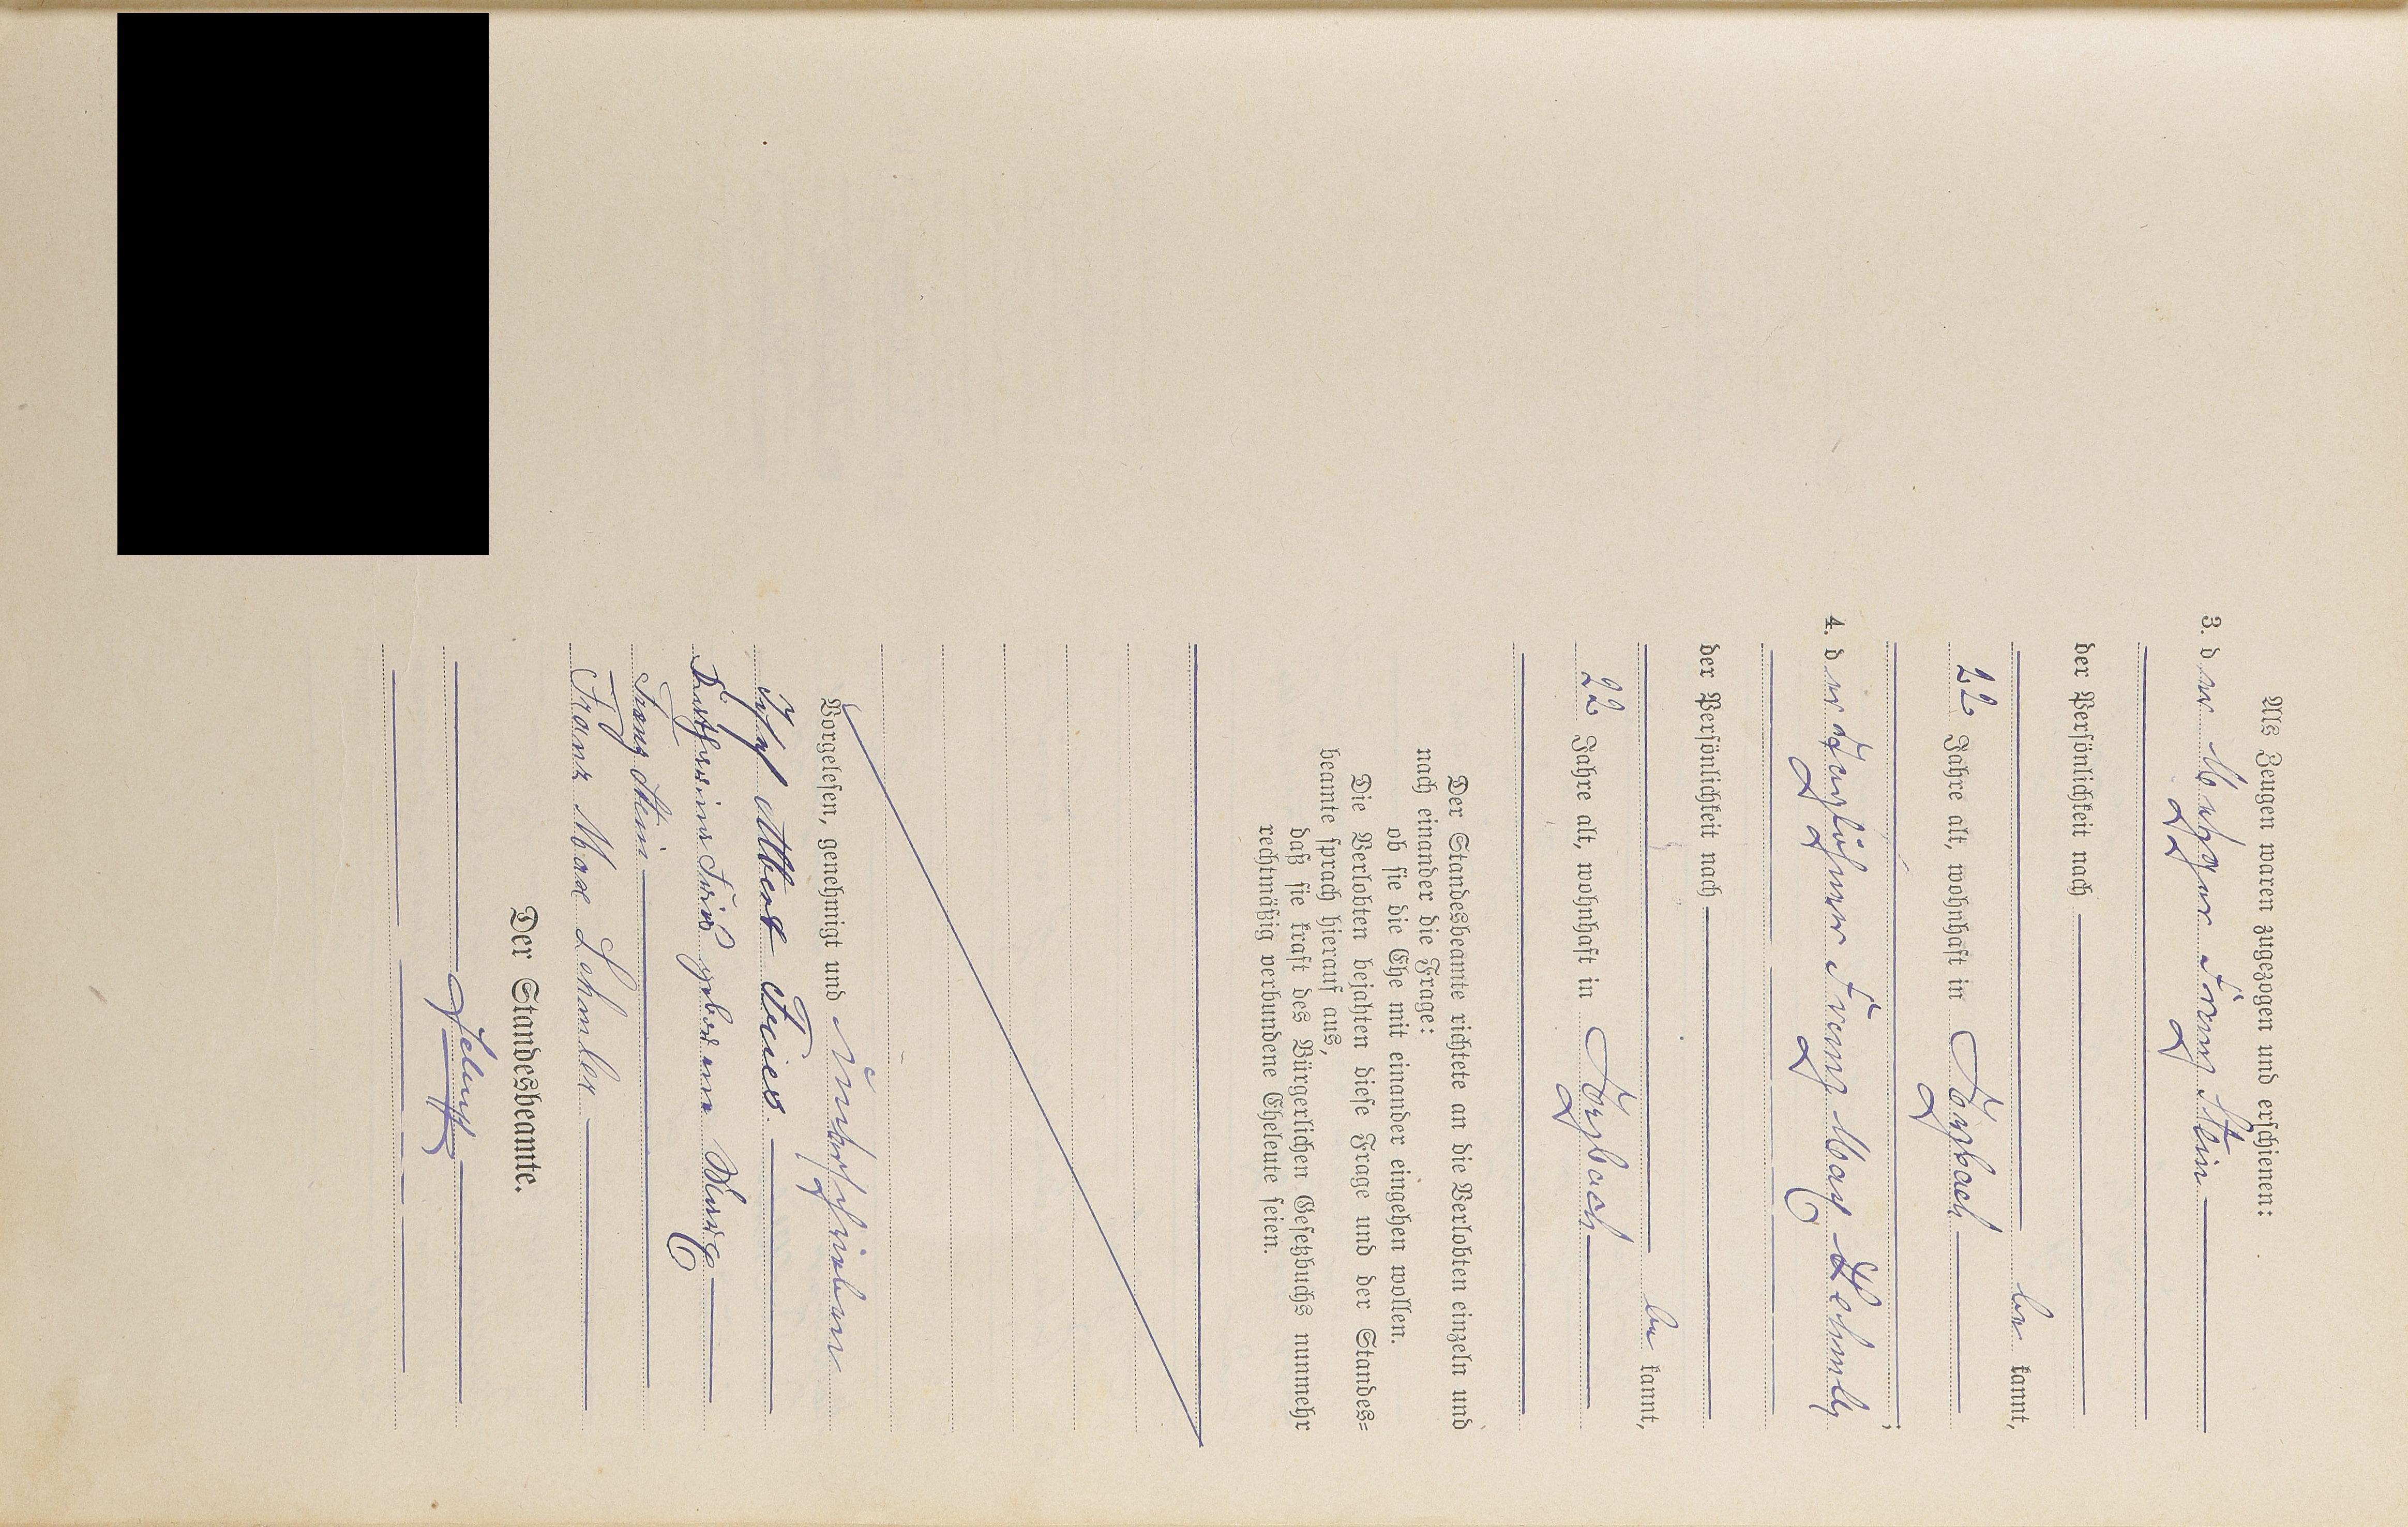 Als Zeugen waren zugezogen und erschienen:
3. der Metzger Franz Stein
der Persönlichkeit nach
be kannt,
22 Jahre alt, wohnhaft in Torzbach
;
4. der Franz Max
der Persönlichkeit nach
be kannt,
22 Jahre alt, wohnhaft in Torzbach
Der Standesbeamte richtete an die Verlobten einzeln und
nach einander die Frage:
ob sie die Ehe mit einander eingehen wollen.
Die Verlobten bejahten diese Frage und der Standes-
beamte sprach hierauf aus,
daß sie kraft des Bürgerlichen Gesetzbuchs nunmehr
rechtmäßig verbundene Eheleute seien.
Vorgelesen, genehmigt und unterschrieben
Albert Fries.
Fries geborene
Franz Stein
Franz Max Lehmler
Der Standesbeamte.